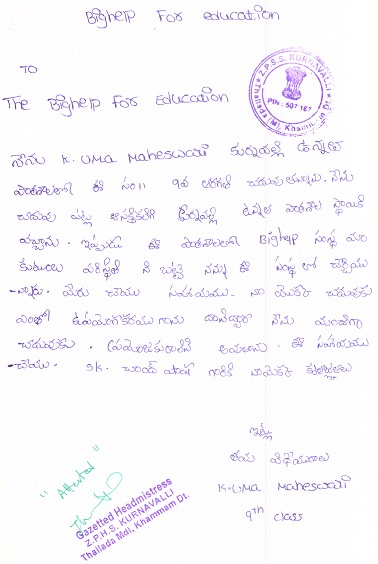 Bighelp For education
Z.P.S.S. KURNAVALLI
PIN : 507 167
Thallada (M), Khammam (Dt)
TO
The Bighelp For Education
నేను K. UMA Maheswari కుర్నవల్లి ఉన్నత
పాఠశాలలో ఈ సం॥ 9వ తరగతి చదువుతున్నాను. నేను
చదువు పట్ల ఆసక్తికలిగి ఉన్నత పాఠశాల స్థాయికి
వచ్చాను. ఇప్పుడు ఈ పాఠశాలలో Bighelp సంస్థ మా
కుటుంబ పరిస్థితి ని బట్టి నన్ను ఈ సంస్థ లో చేర్చు
కున్నారు. మీరు చేయు సహాయము. నా యొక్క చదువుకు
ఎంతో ఉపయోగకరము గాను దానిద్వారా నేను మంచిగా
చదువుకు. ఈ సహాయము
చేయు. SK. చాంద్ పాషా గారికి నాయొక్క కృతజ్ఞతలు
ఇట్లు
తమ విధేయురాలు
K. UMA Maheswari
9th class
"Attested"
Gazetted Headmistress
Z.P.H.S. KURNAVALLI
Thallada Mdl, Khammam Dt.